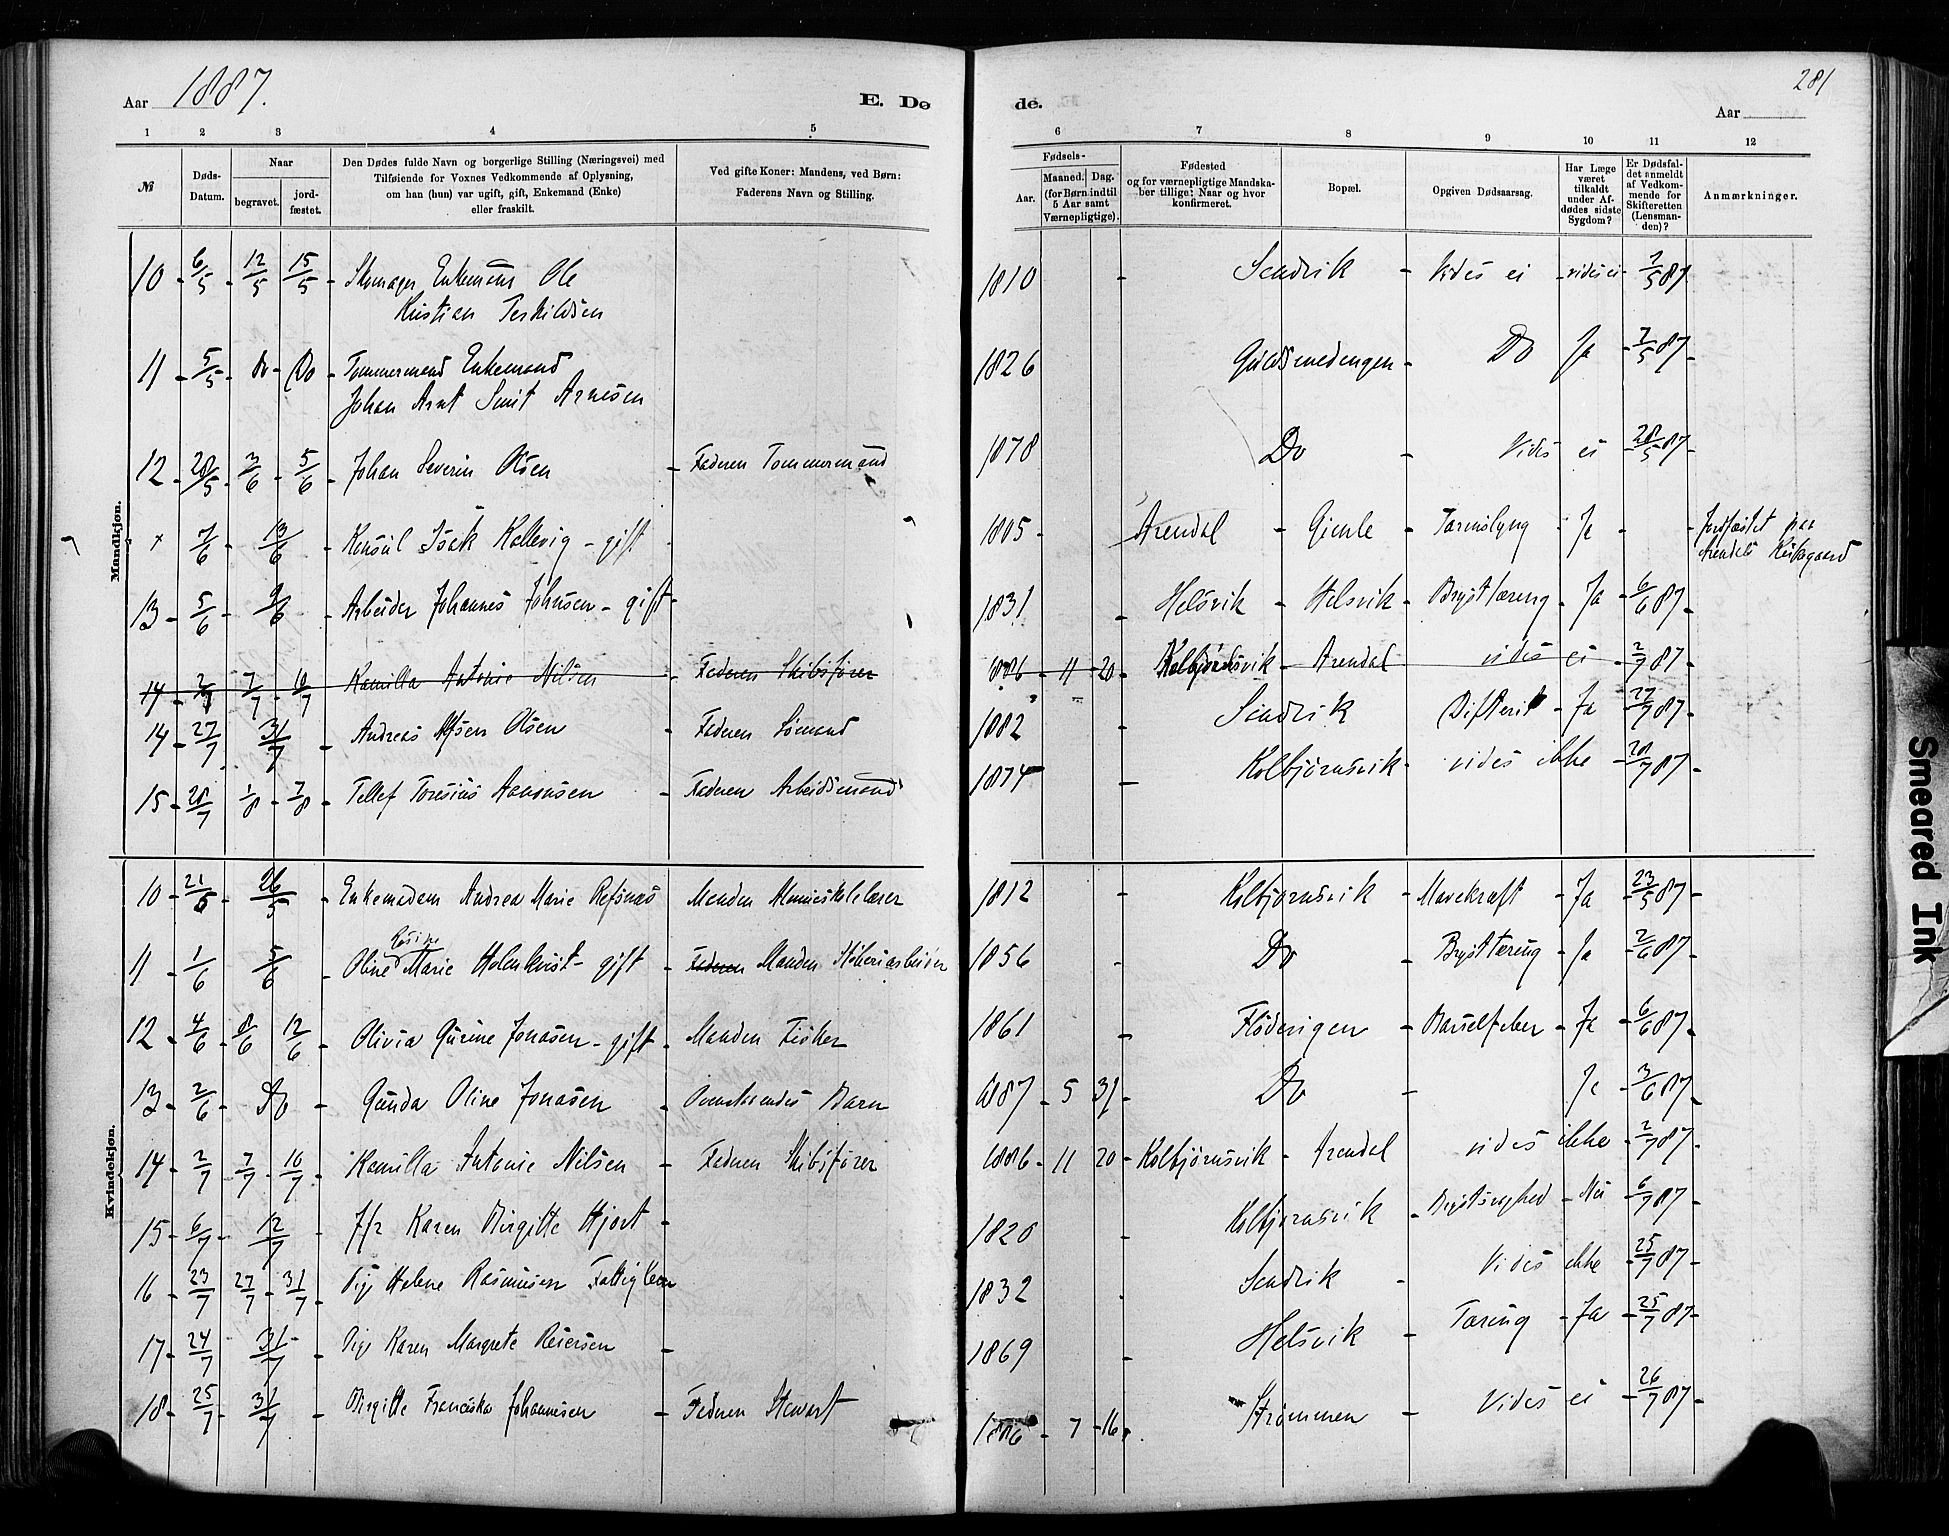 Aar 1887. E. Dø
de. Aar
281
1 2 3 4 5
6 7 8 9 10 11 12
№
Døds-
Datum.
Naar
begravet.
jord-
fæstet.
Den Dødes fulde Navn og borgerlige Stilling (Næringsvei) med
Tilføiende for Voxnes Vedkommende af Oplysning,
om han (hun) var ugift, gift, Enkemand (Enke)
eller fraskilt.
Ved gifte Koner: Mandens, ved Børn:
Faderens Navn og Stilling.
Fødsels-
Aar.
Maaned. Dag.
(for Børn indtil
5 Aar samt
Værnepligtige).
Fødested
og for værnepligtige Mandska-
ber tillige: Naar og hvor
konfirmeret.
Bopæl.
Opgiven Dødsaarsag.
Har Læge
været
tilkaldt
under Af-
dødes sidste
Sygdom?
Er Dødsfal-
det anmeldt
af Vedkom-
mende for
Skifteretten
(Lensman-
den)?
Anmærkninger.
Mandkjøn.
10 - 6/5 - 12/5 - 15/5 - Skomager Enkemand Ole
Kristian Terkildsen
1810 - Sandvik - Vides ei - vides ei - 7/5 87
11 - 5/5 - Do - Do - Tømmermand Enkemand
Johan Arnt Smit Arnesen
1826 Guldsmedengen - Do Ja - 7/5 87 -
12 - 28/5 3/6 - 5/6 - Johan Severin Olsen - Faderen Tømmermand
1878 Do Vides ei - 28/5 87 -
x 7/6 - 13/6 - Konsul Isak Kallevig - gift -
1805 - Arendal - Gimle - Tarmslyng - Ja - - jordfæstet paa
Arendals Kirkegaard
13 - 5/6 - 9/6 - Arbeider Johannes Johnsen - gift -
1831 - Helsvik - Helsvik - Brysttæring - Ja - 6/6 87 -
14 - 2/7 7/7 - 10/7 Kamilla Antonie Nilsen - Faderen Skibsfører
1886 - 11 - 20 - Kolbjørnsvik - Arendal vides ei - 2/7 87
14 - 27/7 31/7 - Andreas Olsen - Faderen Sømand
1882 - Sandvik Difterit - Ja - 27/7 87 -
15 - 28/7 1/8 - 7/8 - Tellef Toresius Aanonsen - Faderen Arbeidsmand
1874 - Kolbjørnsvik - vides ikke - 28/7 87 -
Kvindekjøn.
10 - 21/5 - 26/5 - Enkemadam Andrea Marie Refsnæs Manden Almueskolelærer
1812 - Kolbjørnsvik - Mavekræft - Ja - 23/5 87 -
Rosine
11 - 1/6 5/6 - Oline Marie Holmkvist - gift - Faderen Manden
1856 - Do - Brysttæring - Ja - 2/6 87 -
12 - 4/6 - 8/6 12/6 - Olivia Gurine Jonasen - gift - Manden Fisker
1861 - Flødevigen - Barselfeber - Ja - 6/6 87 -
13 - 2/6 - Do - Gunda Oline Jonasen - Ovenstaaendes Barn
1887 - 5 31 - Do - Ja - 3/6 87 -
14 - 2/7 7/7 - 10/7 - Kamilla Antonie Nilsen - Faderen Skibsfører
1886 - 11 20 - Kolbjørnsvik - Arendal vides ikke - 2/7 87 -
15 - 6/7 - 12/7 - Jfr Karen Birgitte Hjort -
1820 - Kolbjørnsvik - Brystsvaghed - Nei - 6/7 87 -
16 - 23/7 27/7 - 31/7 - Pige Helene Rasmusen Fattiglem
1832 Sandvik - Vides ikke - 25/7 87 -
17 - 24/7 31/7 - Pige Karen Margrete Reiersen -
1869 - Helsvik - Tæring - Ja - 25/7 87 -
18 - 25/7 - 31/7 - Birgitte Franciska Johannesen - Faderen Stewart
1886 - 7 - 16 - Strømmen - Vides ei - 26/7 87 -
Smeared Ink